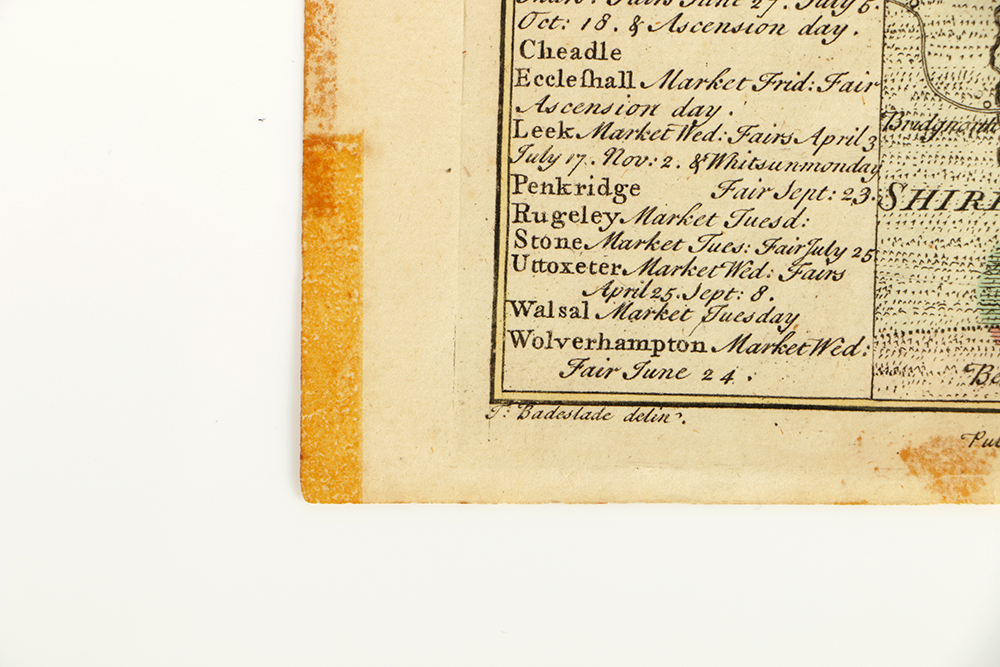 Fairs June 27. July 5.
Oct: 18. & Ascension day.
Cheadle
Eccleſhall Market Frid: Fair
Ascension day.
Leek Market Wed: Fairs April 3
July 17. Nov: 2. & Whitsunmonday
Penkridge Fair Sept: 23.
Rugeley Market Tuesd:
Stone Market Tues: Fair July 25
Uttoxeter Market Wed: Fairs
April 25. Sept: 8.
Walsal Market Tuesday
Wolverhampton Market Wed:
Fair June 24.
T. Badeslade delin.
Bridgnorth
SHIR
Be
Pu